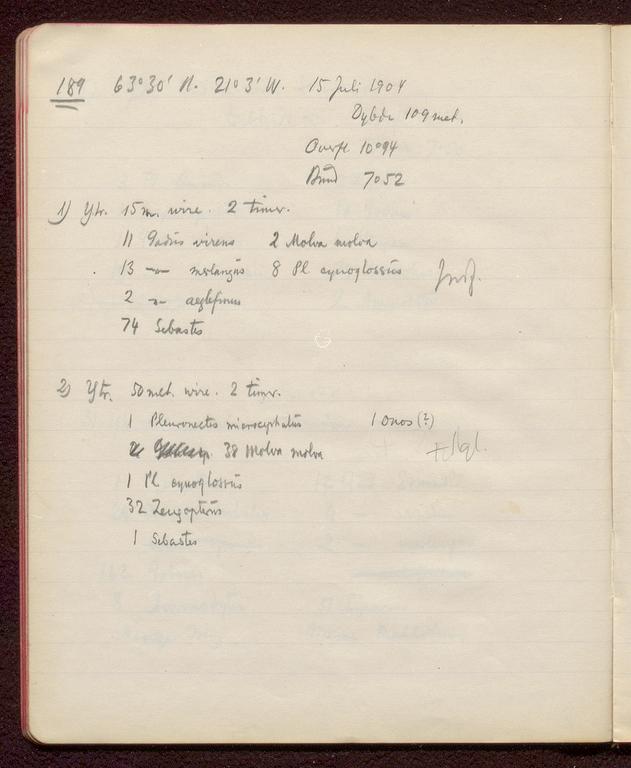 189 63°30' N. 21°3' W. 15 Juli 1904
Dybde 109 met.
Overfl. 10°94
Bund 7°52
1) Ytr. 15 m. wire. 2 timer.
11 Gadus virens 2 Molva molva
13 —"— merlangus 8 Pl. cynoglossus
2 —"— aeglefinus
74 Sebastes
2) Ytr. 50 met. wire. 2 timer.
1 Pleuronectes microcephalus 1 Onos (?)
38 Molva molva
1 Pl. cynoglossus
32 Zeugopterus
1 Sebastes